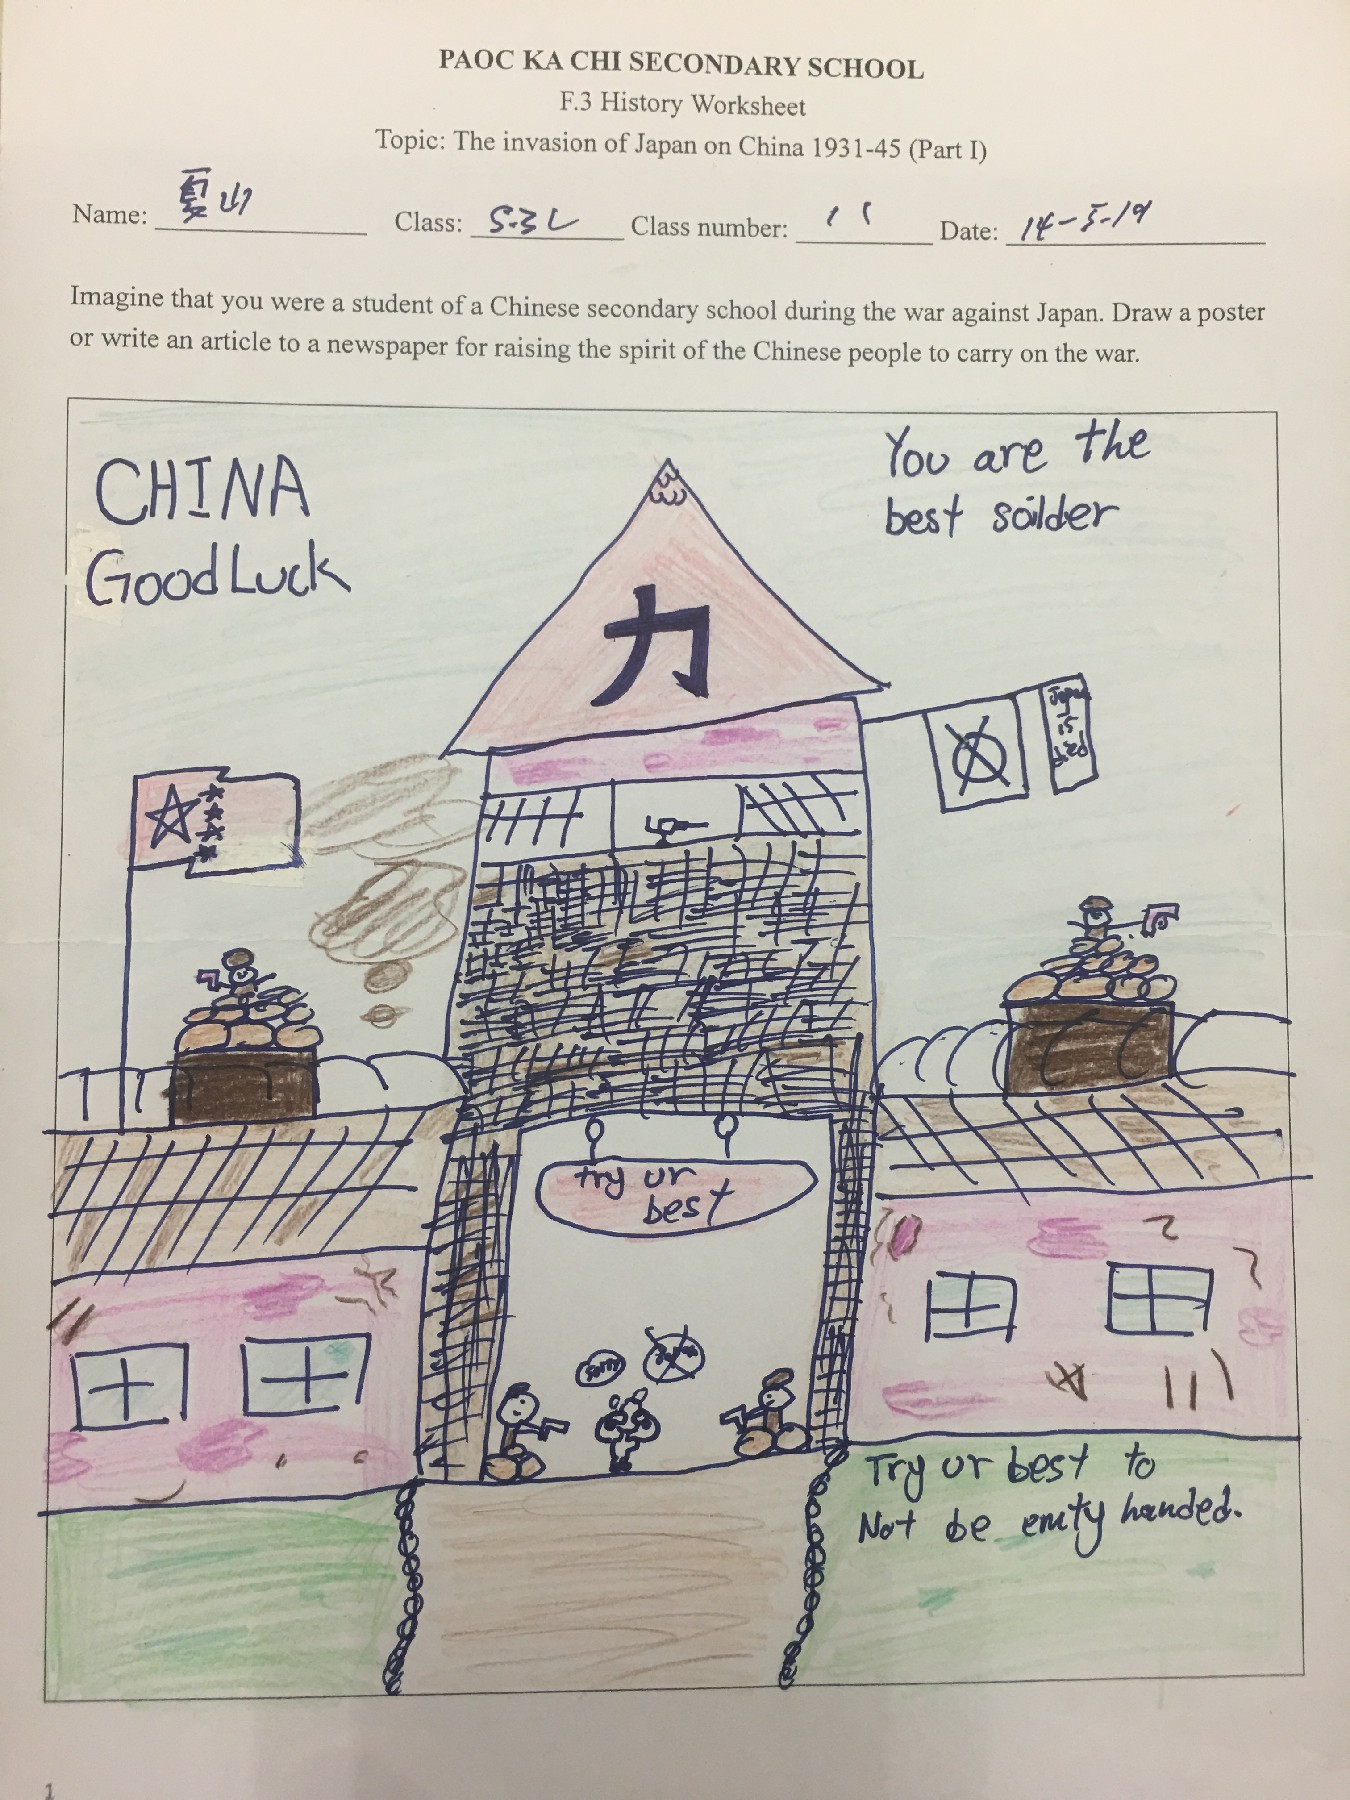 PAOC KA CHI SECONDARY SCHOOL
F.3 History Worksheet
Topic: The invasion of Japan on China 1931-45 (Part I)
Name: 夏山 Class: S.3L Class number: 11 Date: 14-5-19
Imagine that you were a student of a Chinese secondary school during the war against Japan. Draw a poster
or write an article to a newspaper for raising the spirit of the Chinese people to carry on the war.
CHINA
Good Luck
You are the
best soilder
力
Japan
is
try ur
best
sorry
Try ur best to
Not be emty handed.
1